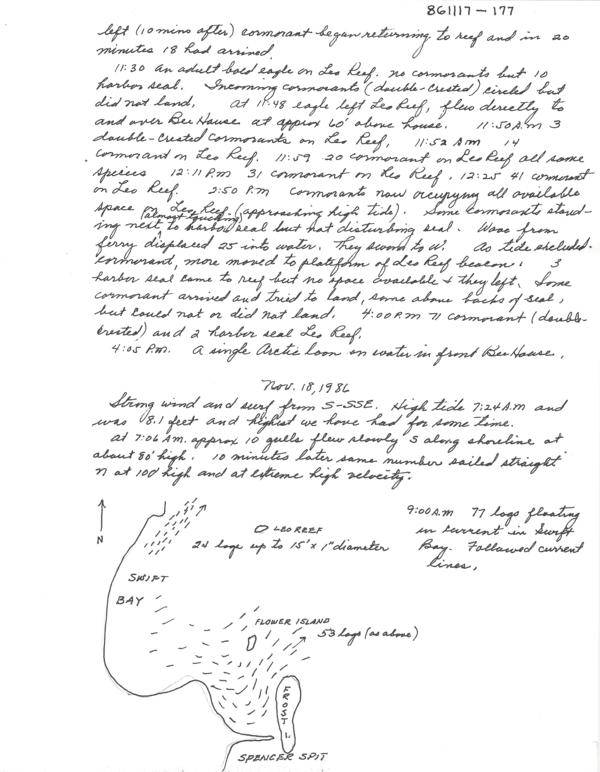 861117-177
left (10 mins after) cormorant began returning to reef and in 20
minutes 18 had arrived.
11:30 An adult bald eagle on Leo Reef. no cormorants but 10
harbor seal. Incoming cormorants (double-crested) circled but
did not land. At 11:48 eagle left Leo Reef, flew directly to
and over Bee House at approx 60' above house. 11:50 A.M 3
double-crested cormorants on Leo Reef, 11:52 AM 14
cormorant on Leo Reef. 11:59 20 cormorant on Leo Reef all same
species 12:11 P.M 31 cormorant on Leo Reef. 12:25 41 cormorant
on Leo Reef. 2:50 P.M cormorants now occupying all available
space on Leo Reef (approaching high tide). Some cormorants stand-
ing next almost touching to harbor seal but not disturbing seal. Wave from
ferry displaced 25 into water. They swam to W. As tide excluded
cormorant, more moved to plateform of Leo Reef beacon. 3
harbor seal came to reef but no space available & they left. Some
cormorant arrived and tried to land, some above backs of seal,
but could not or did not land. 4:00 P.M 71 cormorant (double-
crested) and 2 harbor seal Leo Reef.
4:05 P.M. A single Arctic loon on water in front Bee House.
Nov. 18, 1986
Strong wind and surf from S-SSE. High tide 7:24 A.M and
was 8.1 feet and highest we have had for some time.
At 7:06 A.M. approx 10 gulls flew slowly S along shoreline at
about 80' high. 10 minutes later same number sailed straight
N at 100' high and at extreme high velocity.
9:00 A.M 77 logs floating
in current in Swift
Bay. Followed current
lines.
N
LEO REEF
24 logs up to 15' x 1" diameter
SWIFT
BAY
FLOWER ISLAND
53 logs (as above)
FROST I.
SPENCER SPIT